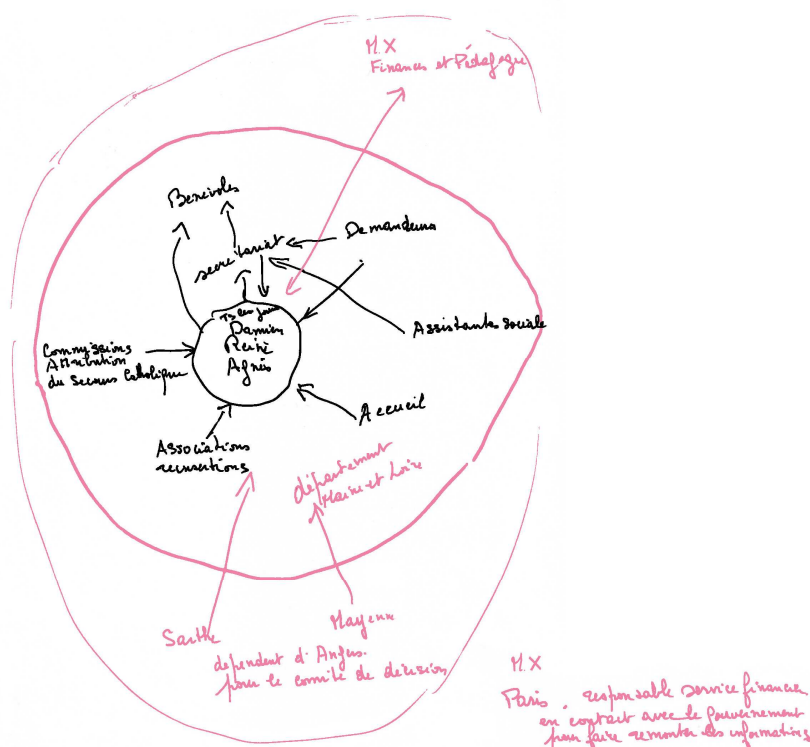 M.X
Finances et Pédagogie
Bénévoles
Demandeurs
secrétariat
Damien
Reine
Agnès
Assistante sociale
Commissions
Attribution
du Secours Catholique
Accueil
Associations
réinsertions
département
Maine et Loire
Sarthe
Mayenne
dépendent d'Angers.
pour le comité de décision
M.X
Paris, responsable service financier
en contact avec le gouvernement
pour faire remonter les informations